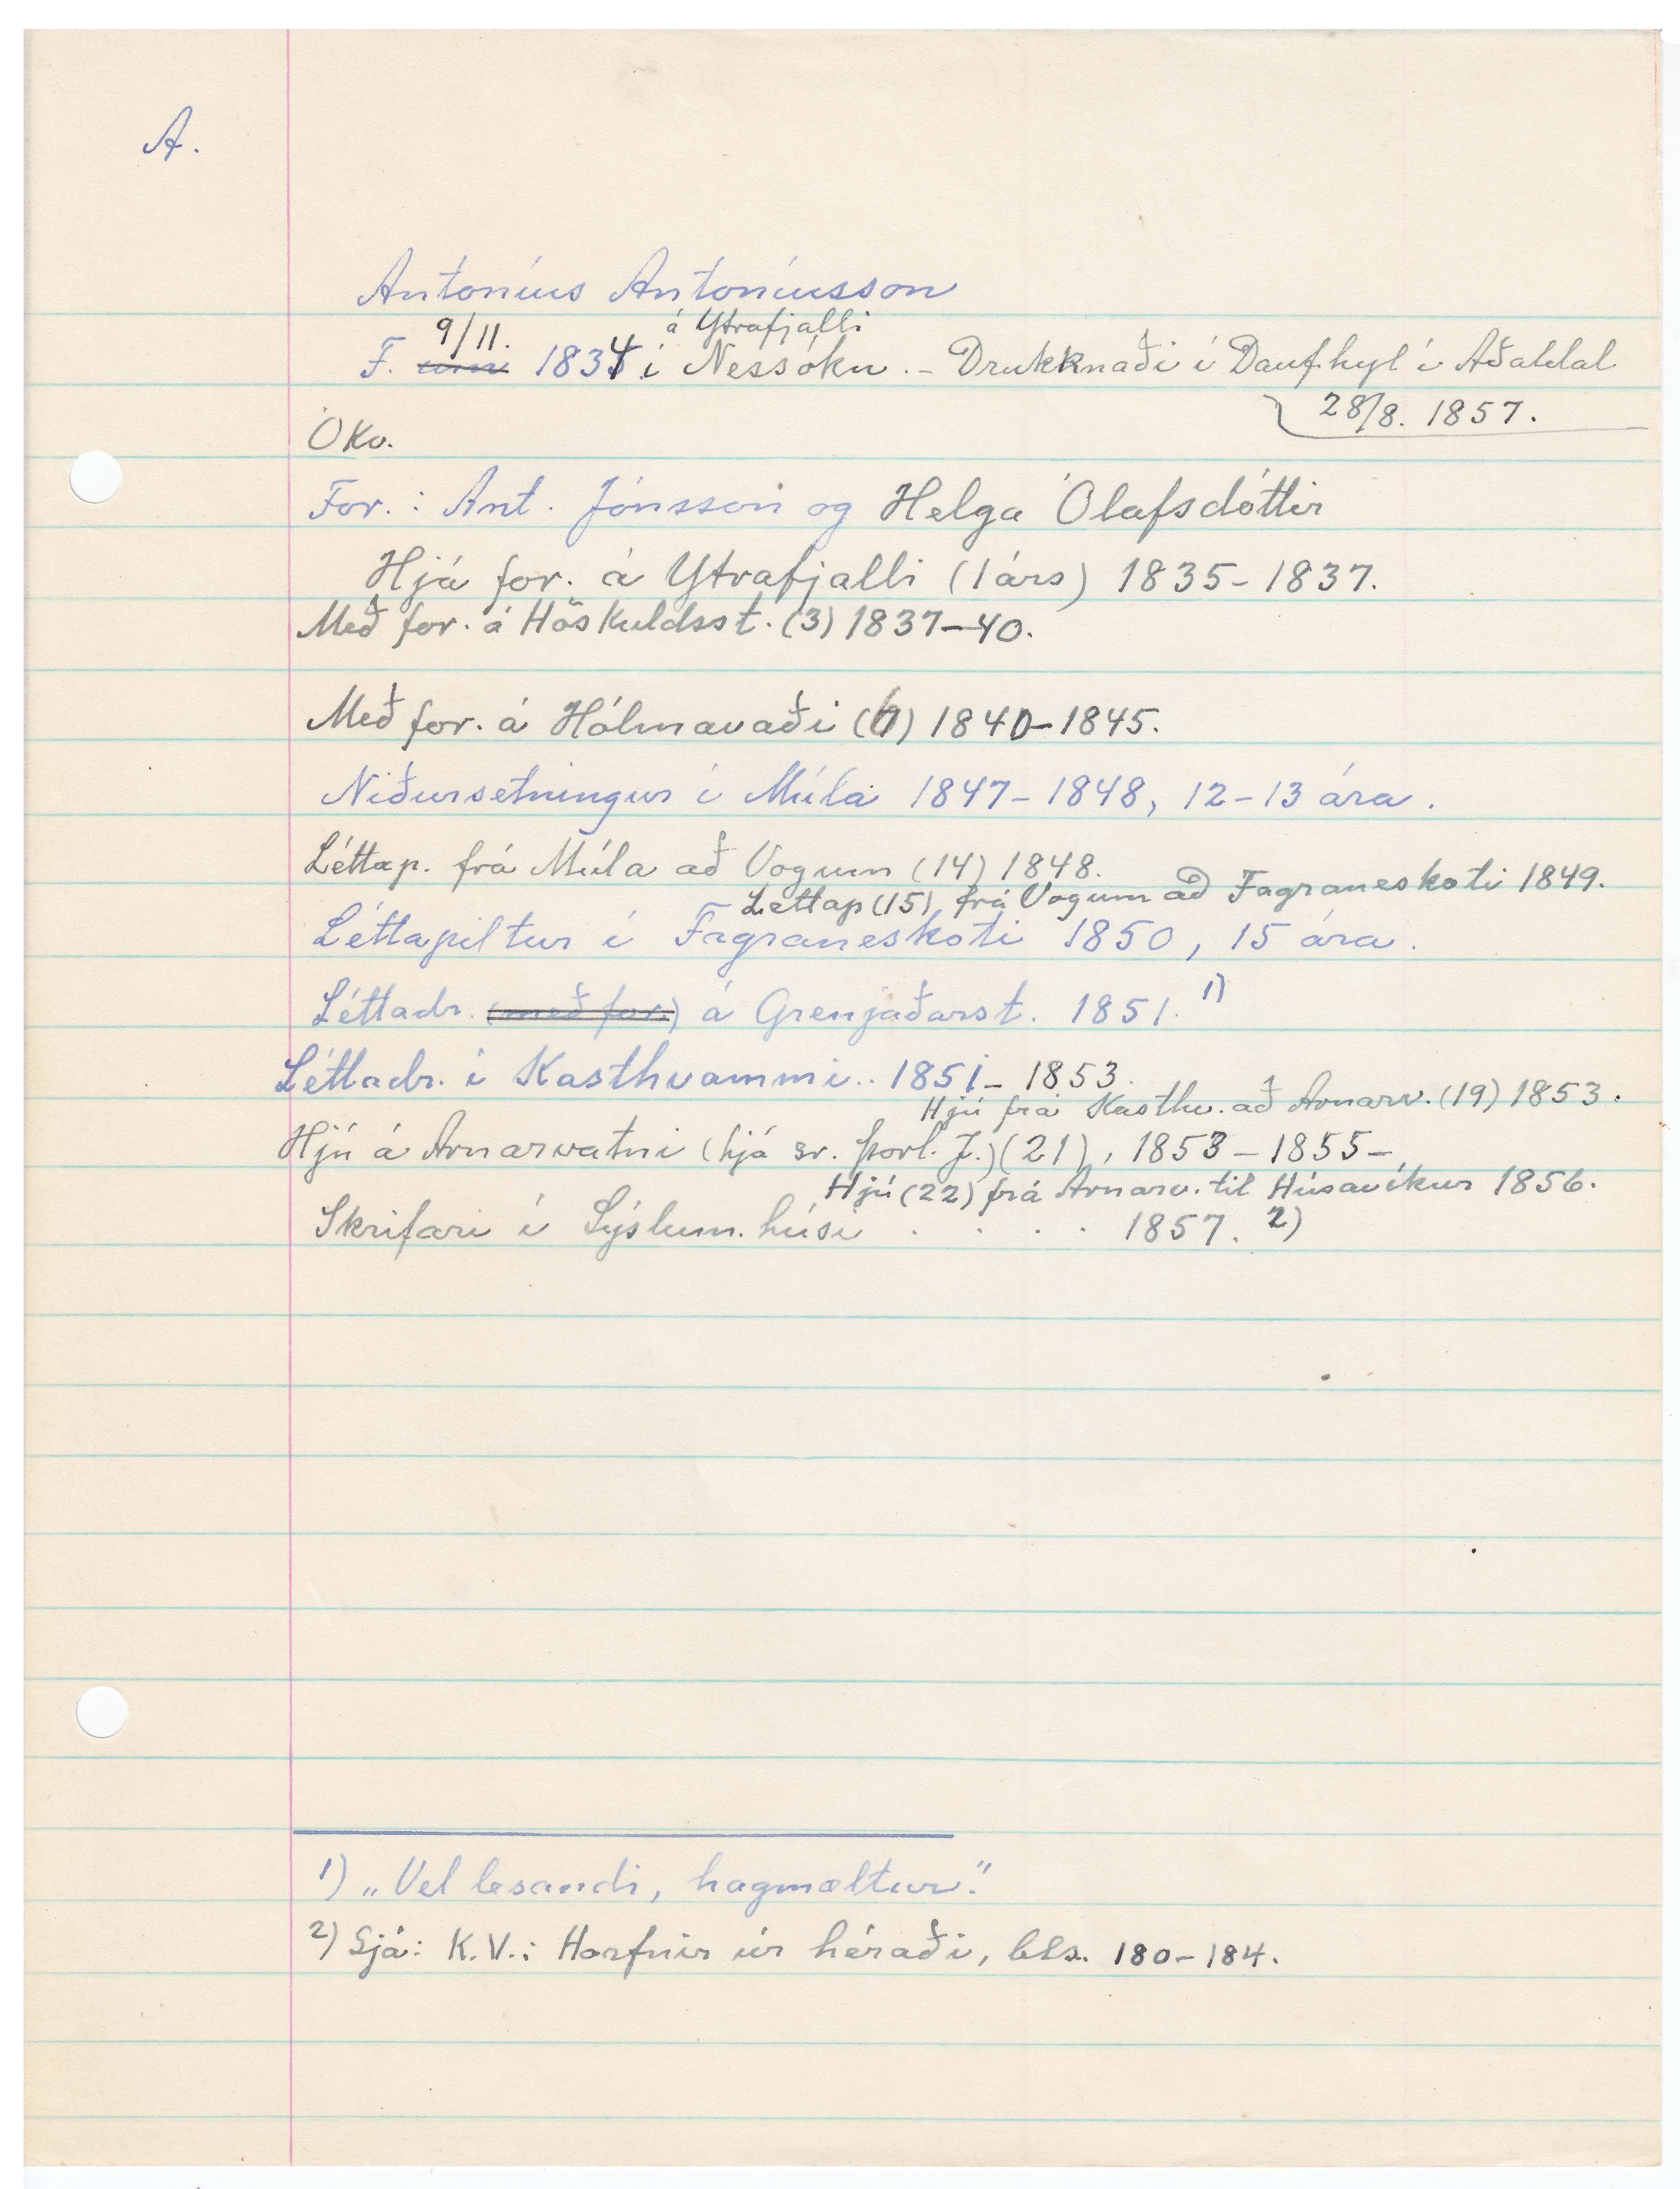 A.
Antoníus Antoníusson
9/11. á Ytrafjalli
F. um 1834 í Nessókn. - Drukknaði í Daufhyl í Aðaldal
28/8. 1857.
Ókv.
For.: Ant. Jónsson og Helga Ólafsdóttir
Hjá for. á Ytrafjalli (1 árs) 1835-1837.
Með for. á Höskuldsst. (3) 1837-40.
Með for. á Hólmavaði () 1840-1845.
Niðursetningur í Múla 1847-1848, 12-13 ára.
Léttap. frá Múla að Vogum (14) 1848.
Léttap (15) frá Vogum að Fagraneskoti 1849.
Léttapiltur í Fagraneskoti 1850, 15 ára.
Léttadr. (með for.) á Grenjaðarst. 1851. 1)
Léttadr. í Kasthvammi.. 1851- 1853.
Hjú frá Kasthv. að Arnarv. (19) 1853.
Hjú á Arnarvatni (hjá sr. Þorl. J.) (21), 1853-1855-
Hjú (22) frá Arnarv. til Húsavíkur 1856.
Skrifari í Sýslum. húsi . . . . 1857. 2)
1) „Vel lesandi, hagmæltur."
2) Sjá: K.V.: Horfnir úr héraði, bls. 180-184.